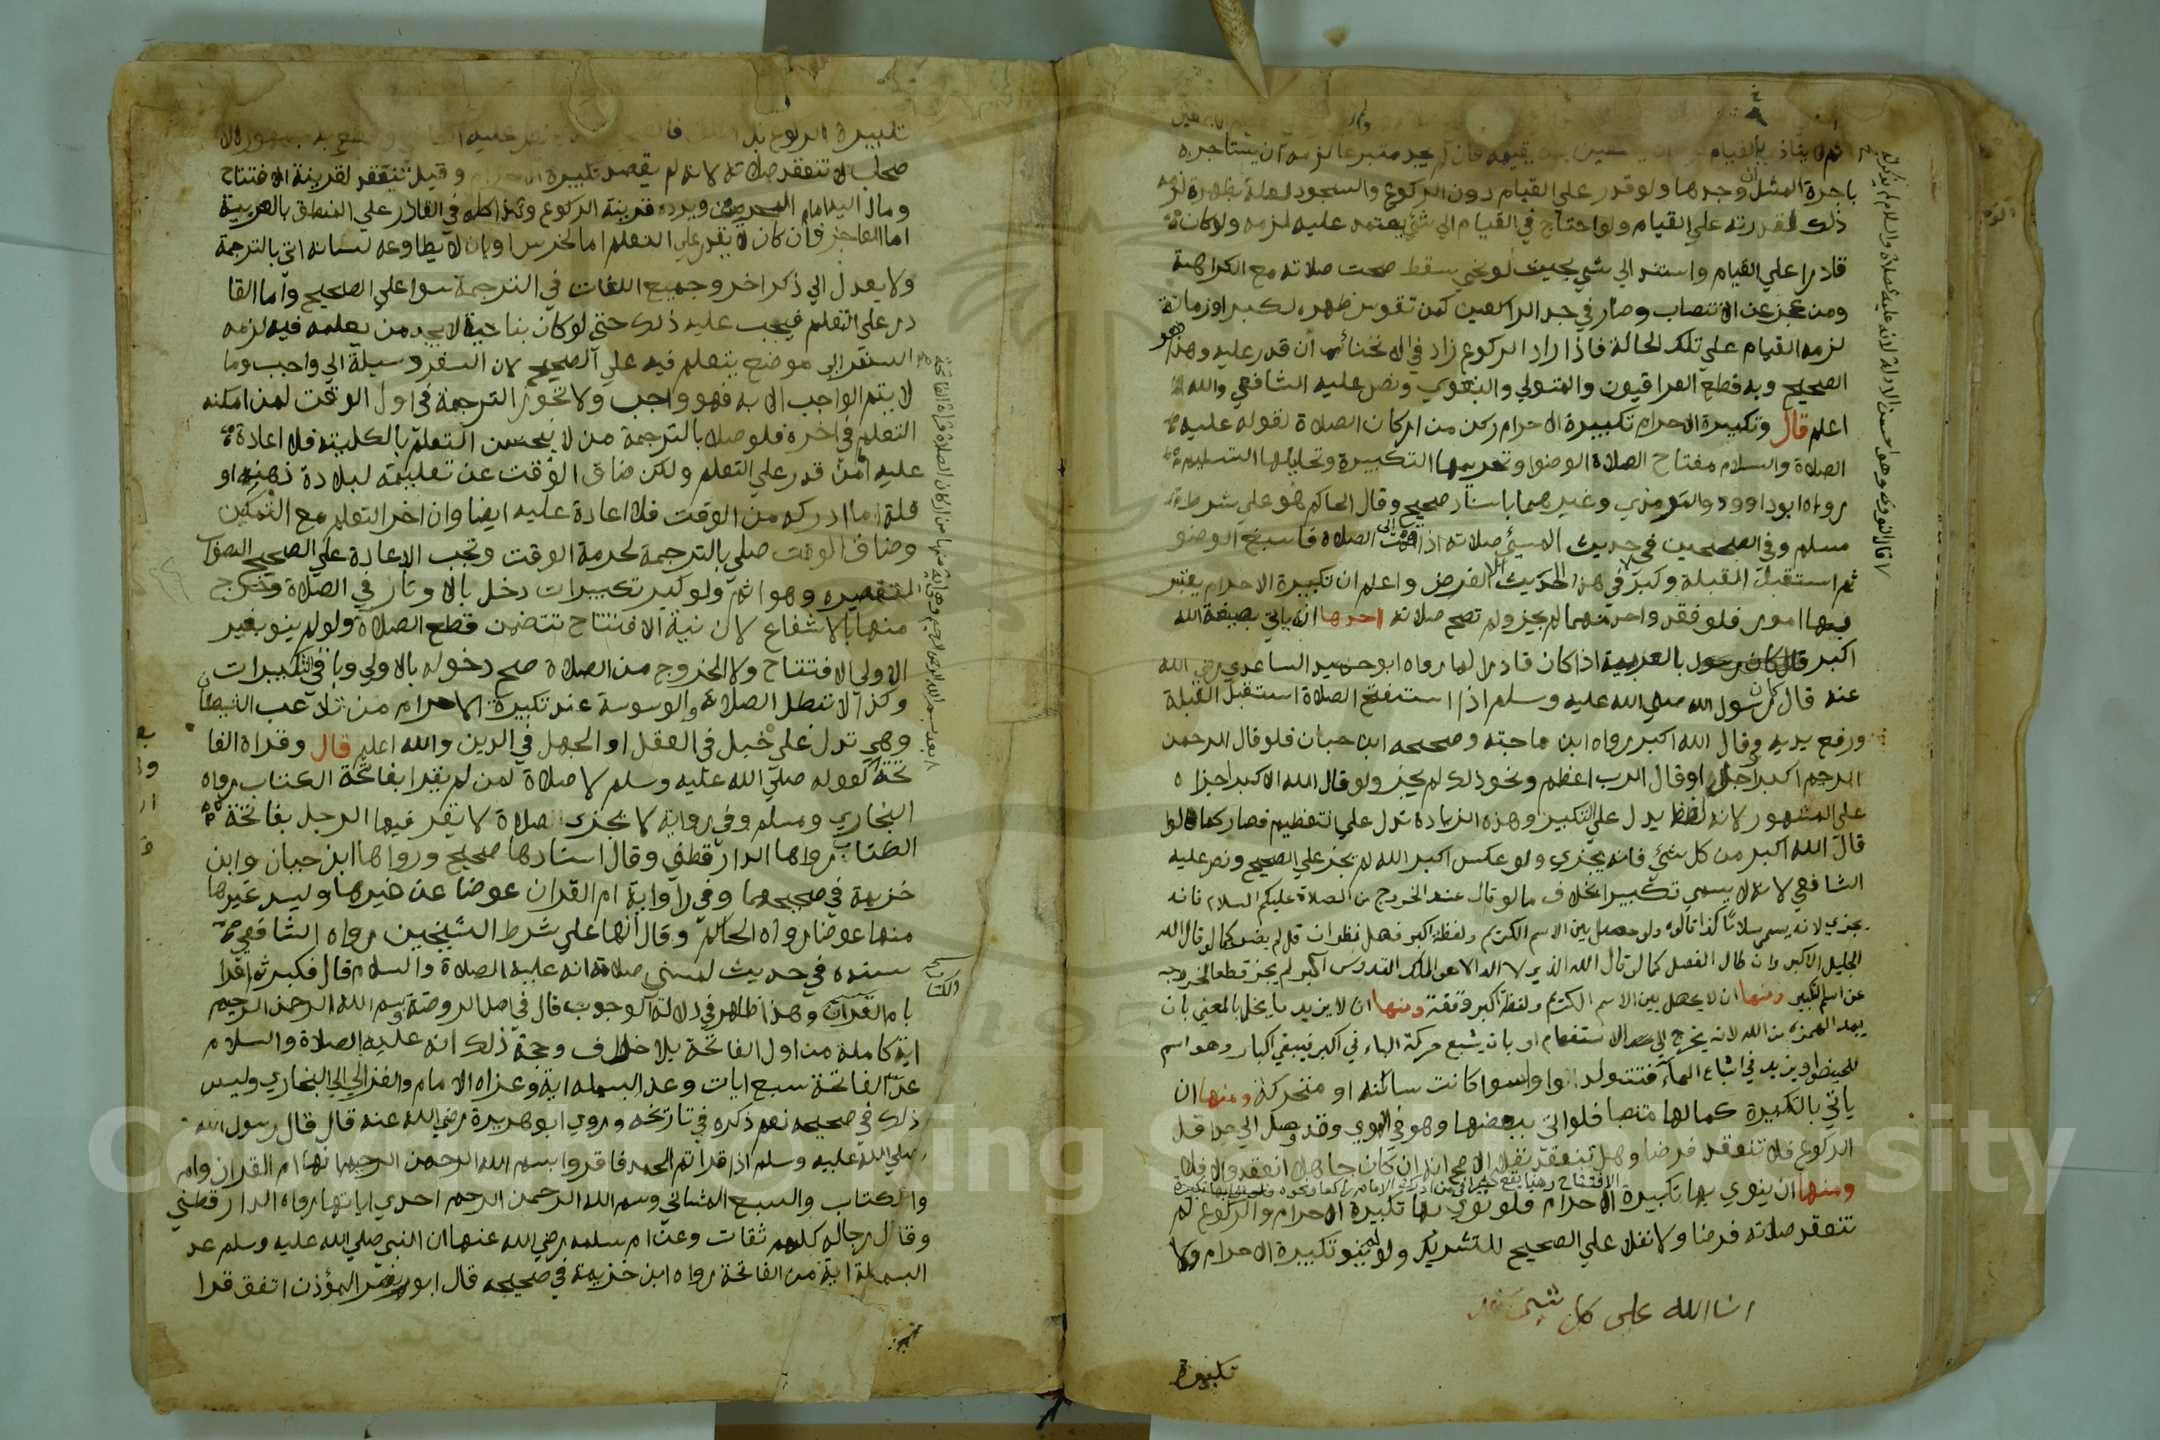 باجرة المثل ان وجدها ولو قدر علي القيام دون الركوع والسجود لعلة بظهره لزمه
ذلك لقدرته علي القيام ولو احتاج في القيام الي شئ يعتمد عليه لزمه ولو كان
قادرا علي القيام واستند الي شي بحيث لو نحي سقط صحت صلاته مع الكراهة
ومن عجز عن الانتصاب وصار في حد الراكعين كمن تقوس ظهره لكبر او زمانة
لزمه القيام علي تلك الحالة فاذا اراد الركوع زاد في الانحنا ان قدر عليه وهذا هو
الصحيح وبه قطع العراقيون والمتولي والبغوي ونص عليه الشافعي والله
اعلم قال وتكبيرة الاحرام تكبيرة الاحرام ركن من اركان الصلاة لقوله عليه
الصلاة والسلام مفتاح الصلاة الوضوا وتحريمها التكبيرة وتحليلها التسليم
رواه ابو داوود والترمزي وغيرهما باسناد صحيح وقال الحاكم هو علي شرط
مسلم وفي الصحيحين في حديث المسيئ صلاته اذا قمت الي الصلاة فاسبغ الوضو
ثم استقبل القبلة وكبر في هذا الحديث الفرض واعلم ان تكبيرة الاحرام يعتبر
فيها امور فلو فقد واحد منهما لم يجز ولم تصح صلاته احدها ان ياتي بصيغة الله
اكبر بالعربية اذا كان قادرا لما رواه ابو حميد الساعدي رضي الله
عنه قال كان رسول الله صلي الله عليه وسلم اذا استفتح الصلاة استقبل القبلة
ورفع يديه وقال الله اكبر رواه ابن ماجته وصححه ابن حبان فلو قال الرحمن
الرحيم اكبر اجل او قال الرب اعظم ونحو ذلك لم يجز ولو قال الله الاكبر اجزاه
علي المشهور لانه لفظ يدل علي التكبير وهذه الزيادة تدل علي التعظيم فصار كما لو
قال الله اكبر من كل شئ فانه يجزي ولو عكس اكبر الله لم يجز علي الصحيح ونص عليه
الشافعي لانه لا يسمي تكبيرا بخلاف ما لو قال عند الخروج من الصلاة عليكم السلام فانه
يجزي لانه يسمي سلاما كذا قالوه ولو حصل بين الاسم الكريم ولفظة اكبر فصل نظر ان قل لم يضر كما لو قال الله
الجليل الاكبر وان طال الفصل كما لو قال الله الذي لا اله الا هو الملك القدوس اكبر لم يجز قطعا لخروجه
عن اسم التكبير ومنها ان لا يحصل بين الاسم الكريم ولفظة اكبر وقفة ومنها ان لا يزيد ما يخل بالمعني بان
يمد الهمزة من الله لانه يخرج الي حد الاستفهام او بان يشبع حركة الباء في اكبر فيبقي اكبار وهو اسم
للحيض او يزيد في اشباع الهاء فتتولد الواو سوا كانت ساكنه او متحركة ومنها ان
ياتي بالتكبيرة كمالها منتصبا فلو اتي ببعضها وهو في الهوي وقد وصل الي حد اقل
الركوع فلا تنعقد فرضا وهل تنعقد نفلا الاصح انه ان كان جاهلا انعقد والا فلا
ومنها ان ينوي بها تكبيرة الاحرام فلو نوي بها تكبيرة الاحرام والركوع لم
تنعقد صلاته فرضا ولا نفلا علي الصحيح للتشريك ولو لم ينو تكبيرة الاحرام ولا
ان الله على كل شي
تكبيرة
تكبيرة الركوع بل
صحاب لا تنعقد صلاته لانه لم يقصد تكبيرة الاحرام وقيل تنعقد لقرينة الافتتاح
ومال اليه امام الحرمين ويرده قرينة الركوع وهذا كله في القادر علي النطق بالعربية
اما العاجز فان كان لا يقدر علي التعلم اما لخرس او بان لا يطاوعه لسانه اتي بالترجمة
ولا يعدل الي ذكر اخر وجميع اللغات في الترجمة سوا علي الصحيح واما القا
در علي التعلم فيجب عليه ذلك حتي لو كان بناحية لا يجد من يعلمه فيه لزمه
السفر الي موضع يتعلم فيه علي الصحيح لان السفر وسيلة الي واجب وما
لا يتم الواجب الا به فهو واجب ولا تجوز الترجمة في اول الوقت لمن امكنه
التعلم في اخره فلو صلا بالترجمة من لا يحسن التعلم بالكلية فلا اعادة
عليه امن قدر علي التعلم ولكن ضاق الوقت عن تعليمه لبلادة ذهنه او
قلة ما ادركه من الوقت فلا اعادة عليه ايضا وان اخر التعلم مع التمكين
وضاق الوقت صلي بالترجمة لحرمة الوقت وتجب الاعادة علي الصحيح الصواب
لتقصيره وهو اثم ولو كبر تكبيرات دخل بالاوتار في الصلاة وخرج
منها بالاشفاع لان نية الافتتاح تتضمن قطع الصلاة ولو لم ينو بغير
الاولي الافتتاح ولا الخروج من الصلاة صح دخوله بالاولي وباقي التكبيرات
وكذا لا تبطل الصلاة والوسوسة عند تكبيرة الاحرام من تلاعب الشيطان
وهي تدل علي خبل في العقل او الجهل في الدين والله اعلم قال وقراة الفا
تحة لقوله صلي الله عليه وسلم لا صلاة لمن لم يقرا بفاتحة الكتاب رواه
البخاري ومسلم وفي رواية لا تجزي الصلاة لا يقر فيها الرجل بفاتحة
الكتاب رواها الدار قطني وقال اسنادها صحيح ورواها ابن حبان وابن
خزيمة في صحيحهما وفي رواية ام القران عوضا عن غيرها وليس غيرها
منها عوضا رواه الحاكم وقال انها علي شرط الشيخين رواه الشافعي
بسنده في حديث المسئي صلاته انه عليه الصلاة والسلام قال فكبر ثم اقرا
بام القرآن وهذا ظاهر في دلالة الوجوب قال في اصل الروضة وبسم الله الرحمن الرحيم
اية كاملة من اول الفاتحة بلا خلاف وحجة ذلك انه عليه الصلاة والسلام
عد الفاتحة سبع ايات وعد البسمله اية وعزاه الامام والغزالي الي البخاري وليس
ذلك في صحيحه نعم ذكره في تاريخه وروي ابو هريرة رضي الله عنه قال قال رسول الله
صلي الله عليه وسلم اذا قراتم الحمد فاقروا بسم الله الرحمن الرحيم انها ام القران وام
الكتاب والسبع المثاني وبسم الله الرحمن الرحيم احدي اياتها رواه الدار قطني
وقال رجاله كلهم ثقات وعن ام سلمه رضي الله عنها ان النبي صلي الله عليه وسلم عد
البسملة اية من الفاتحة رواه ابن خزيمة في صحيحه قال ابو نصر المؤذن اتفق قرا
1957
Copyright © King Saud University